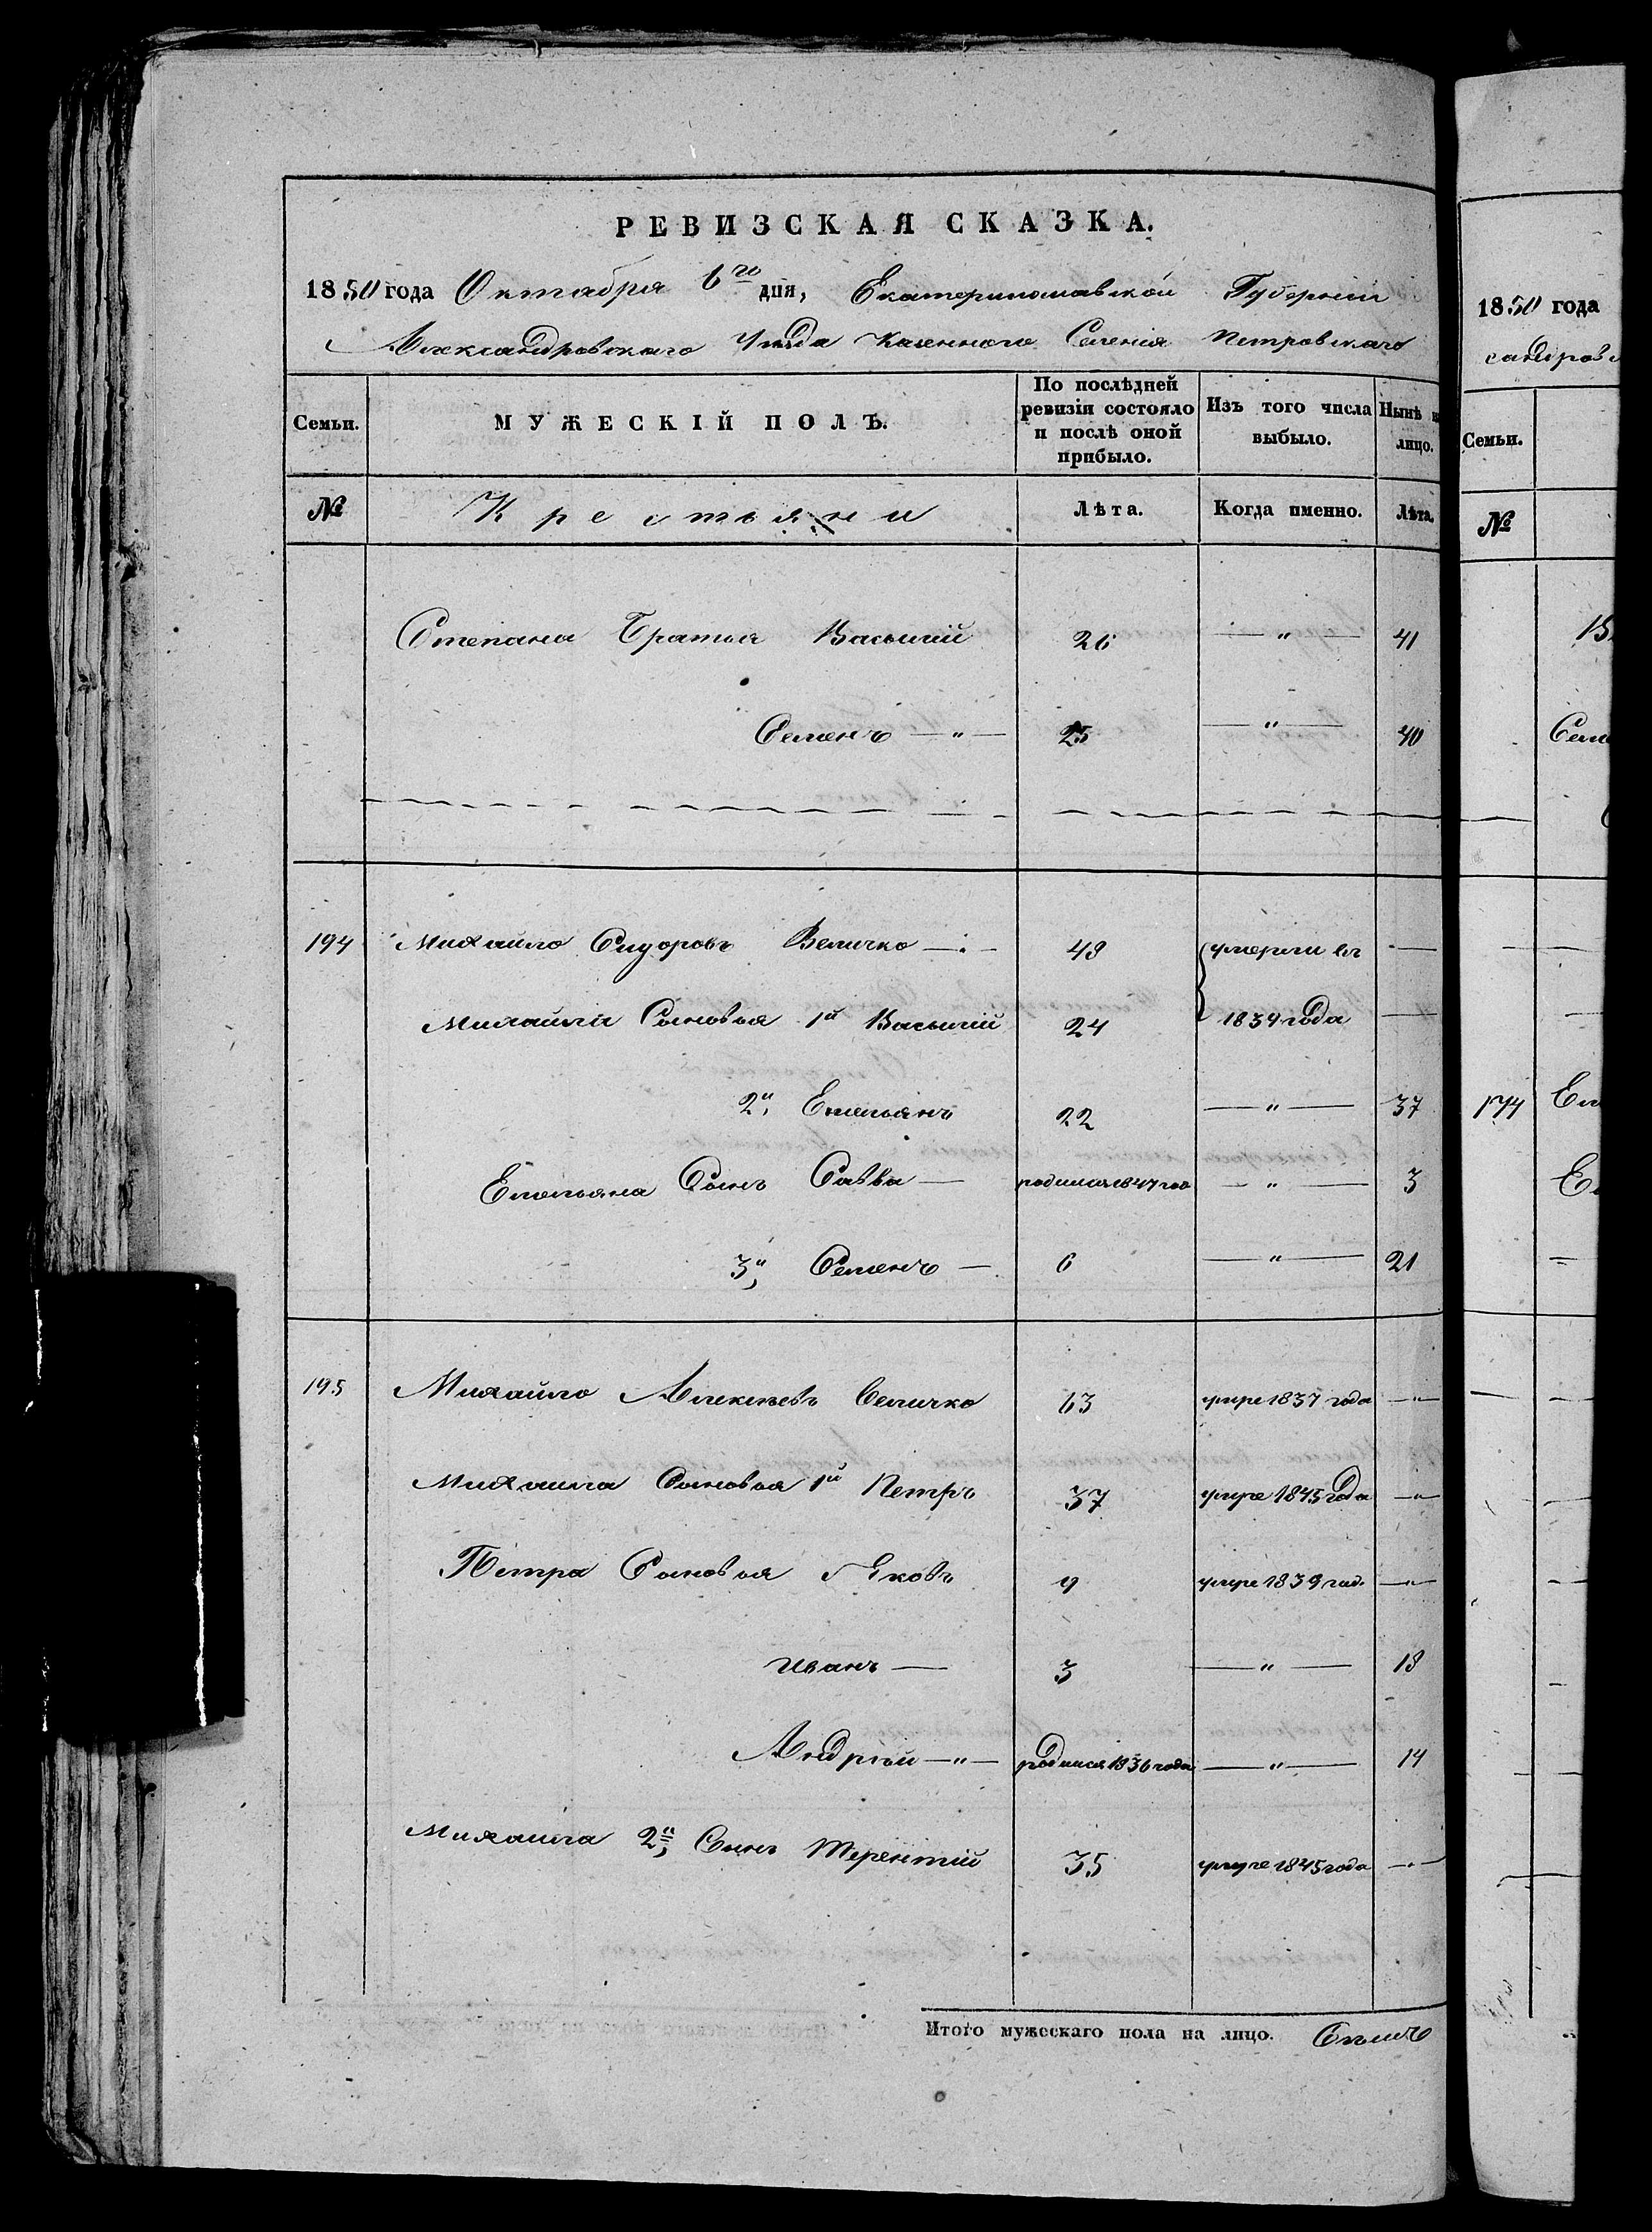 РЕВИЗСКАЯ СКАЗКА.
1850 года Октября 6го дня, Екатеринославской Губернии
Александровского Уезда Казенного Селения Петровского
Семьи. МУЖЕСКІЙ ПОЛЪ. По послѣдней ревизіи состояло и послѣ оной прибыло. Изъ того числа выбыло. Нынѣ н лицо.
№ Крестьяни Лѣта. Когда именно. Лѣта.
Степана Братья Василій 26 — " — 41
Семенъ — " — 25 — " — 40
194 Михайло Сидоровъ Величко — 48 умерли въ —
Михайлы Сыновья 1й Василій 24 1839 года —
2й Емельянъ 22 — " — 37
Емельяна Сынъ Савва — родился 1847 год — " — 3
3й Семенъ — 6 — " — 21
195 Михайло Алексѣевъ Величко 63 умре 1837 года — " —
Михаила Сыновья 1й Петръ 37 умре 1845 года — " —
Петра Сыновья Яковъ 9 умре 1839 год. — " —
Иванъ — 3 — " — 18
Андрѣй — " — родился 1836 года — " — 14
Михаила 2й Сынъ Терентій 35 умре 1845 года — " —
Итого мужескаго пола на лицо. Семь
1850 года
сандровс
Семьи.
№
Семе
174 Ем
Ем